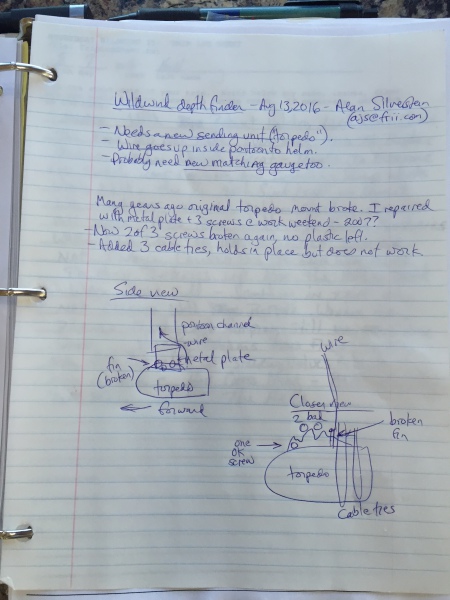 Wildwind depth finder - Aug 13, 2016 - Alan Silverstein
(ajs@frii.com)
- Needs a new sending unit ("torpedo").
- Wire goes up inside pontoon to helm.
- Probably need new matching gauge too.
Many years ago original torpedo mount broke. I repaired
with metal plate + 3 screws @ work weekend - 2007??
- Now 2 of 3 screws broken again, no plastic left.
- Added 3 cable ties, holds in place but does not work
Side view
pontoon channel
wire
metal plate
fin
(broken)
torpedo
forward
wire
Closer view
2 bad
broken
fin
one
OK
screw
torpedo
Cable ties